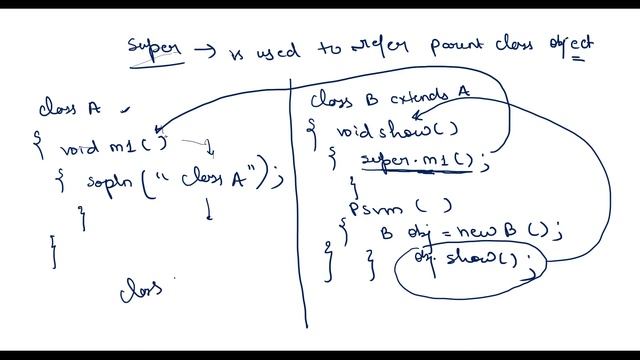 super → is used to refer parent class object
class A
{ void m1()
{ sopln("class A");
}
}
class
class B extends A
{ void show()
{ super.m1();
}
psvm ( )
{ B obj = new B ();
} } obj show();